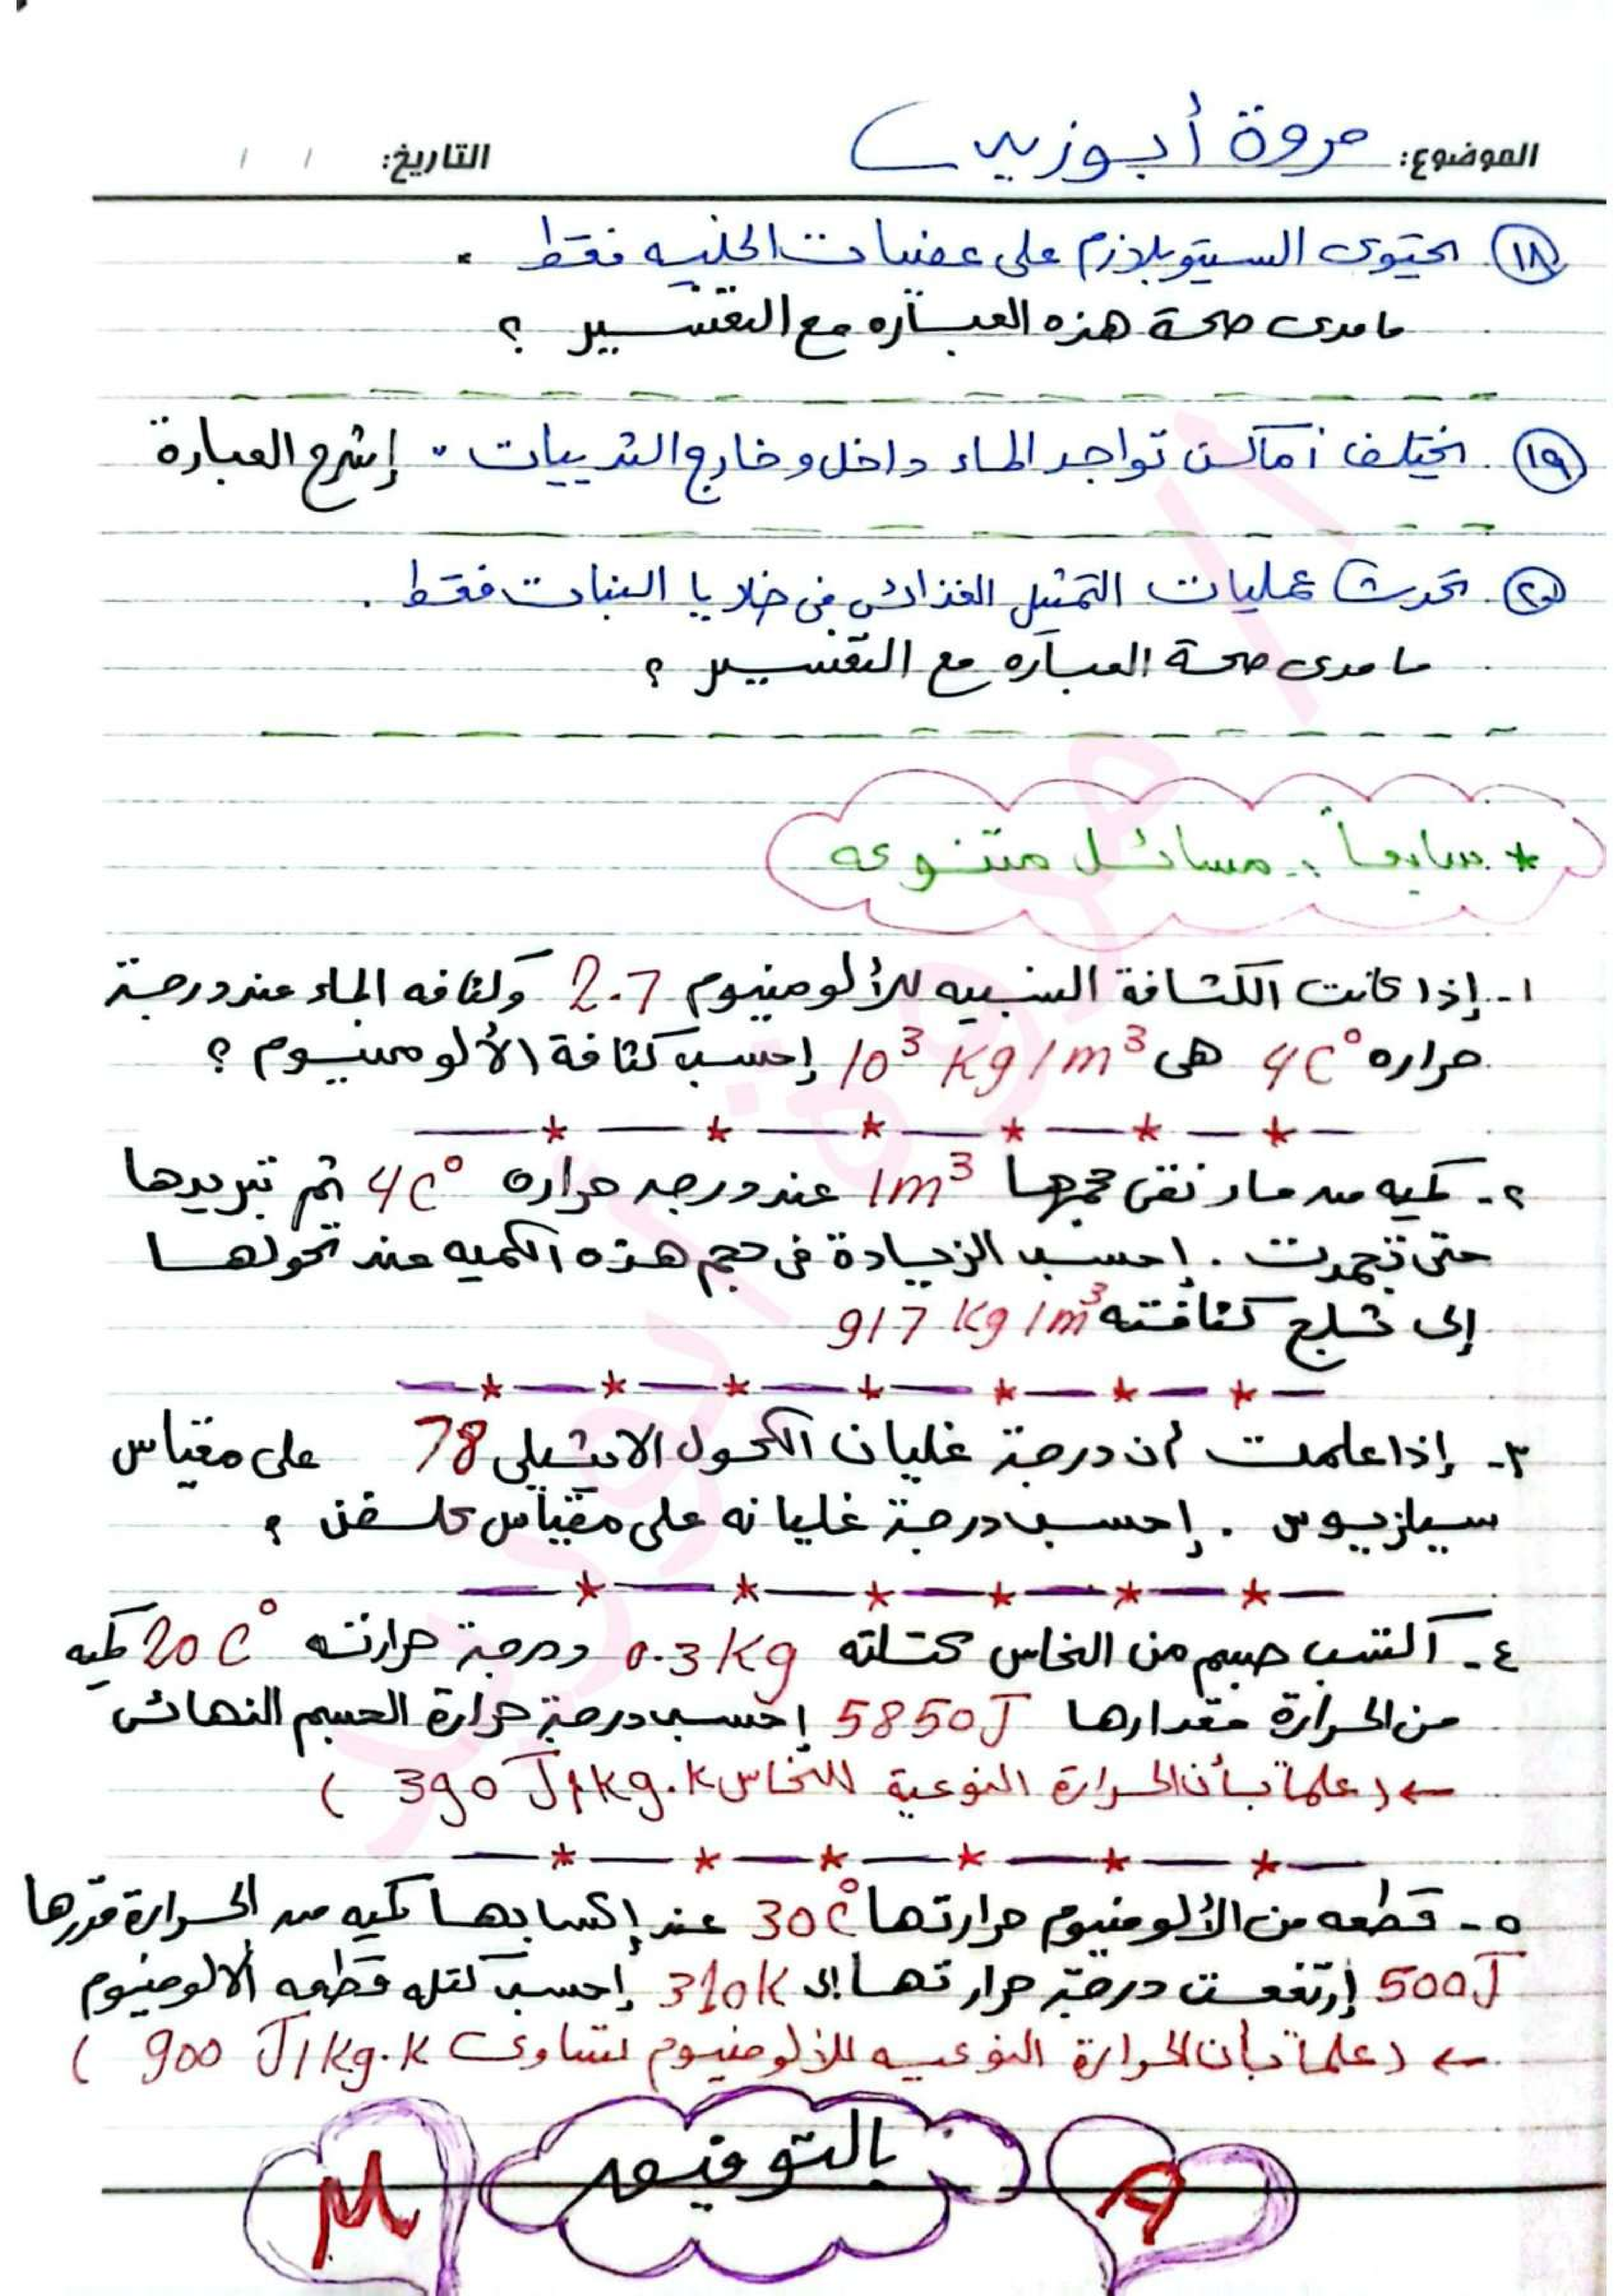 الموضوع: مروة أبوزيد التاريخ: / /
١٨ يحتوى السيتوبلازم على عضيات الخليه فقط .
ما مدى صحة هذه العباره مع التفسير ؟
١٩ يختلف أماكن تواجد الماء داخل وخارج الثدييات " إشرح العبارة
٢٠ تحدث عمليات التمثيل الغذائى فى خلايا النبات فقط .
ما مدى صحة العباره مع التفسير ؟
* سابعاً : مسائل متنوعه
١- إذا كانت الكثافة النسبيه للألومنيوم 2.7 وكثافه الماء عند درجة
حراره 4C° هى 10³ Kg/m³ إحسب كثافة الألومنيوم ؟
٢- كميه من ماء نقى حجمها 1m³ عند درجه حراره 4C° تم تبريدها
حتى تجمدت . إحسب الزيادة فى حجم هذه الكميه عند تحولها
إلى ثلج كثافته 917 Kg/m³
٣- إذا علمت أن درجة غليان الكحول الايثيلى 78 على مقياس
سيلزيوس . إحسب درجة غليانه على مقياس كلفن ؟
٤- اكتسب جسم من النحاس كتلته 0.3Kg ودرجة حرارته 20C° كميه
من الحرارة مقدارها 5850J إحسب درجة حرارة الجسم النهائى
← ( علماً بأن الحرارة النوعية للنحاس 390 J/Kg.K )
٥- قطعه من الألومنيوم حرارتها 30C° عند إكسابها كميه من الحرارة قدرها
500J إرتفعت درجة حرارتها إلى 310K إحسب كتله قطعه الألومنيوم
← ( علماً بأن الحرارة النوعيه للألومنيوم تساوى 900 J/Kg.K )
بالتوفيق
M